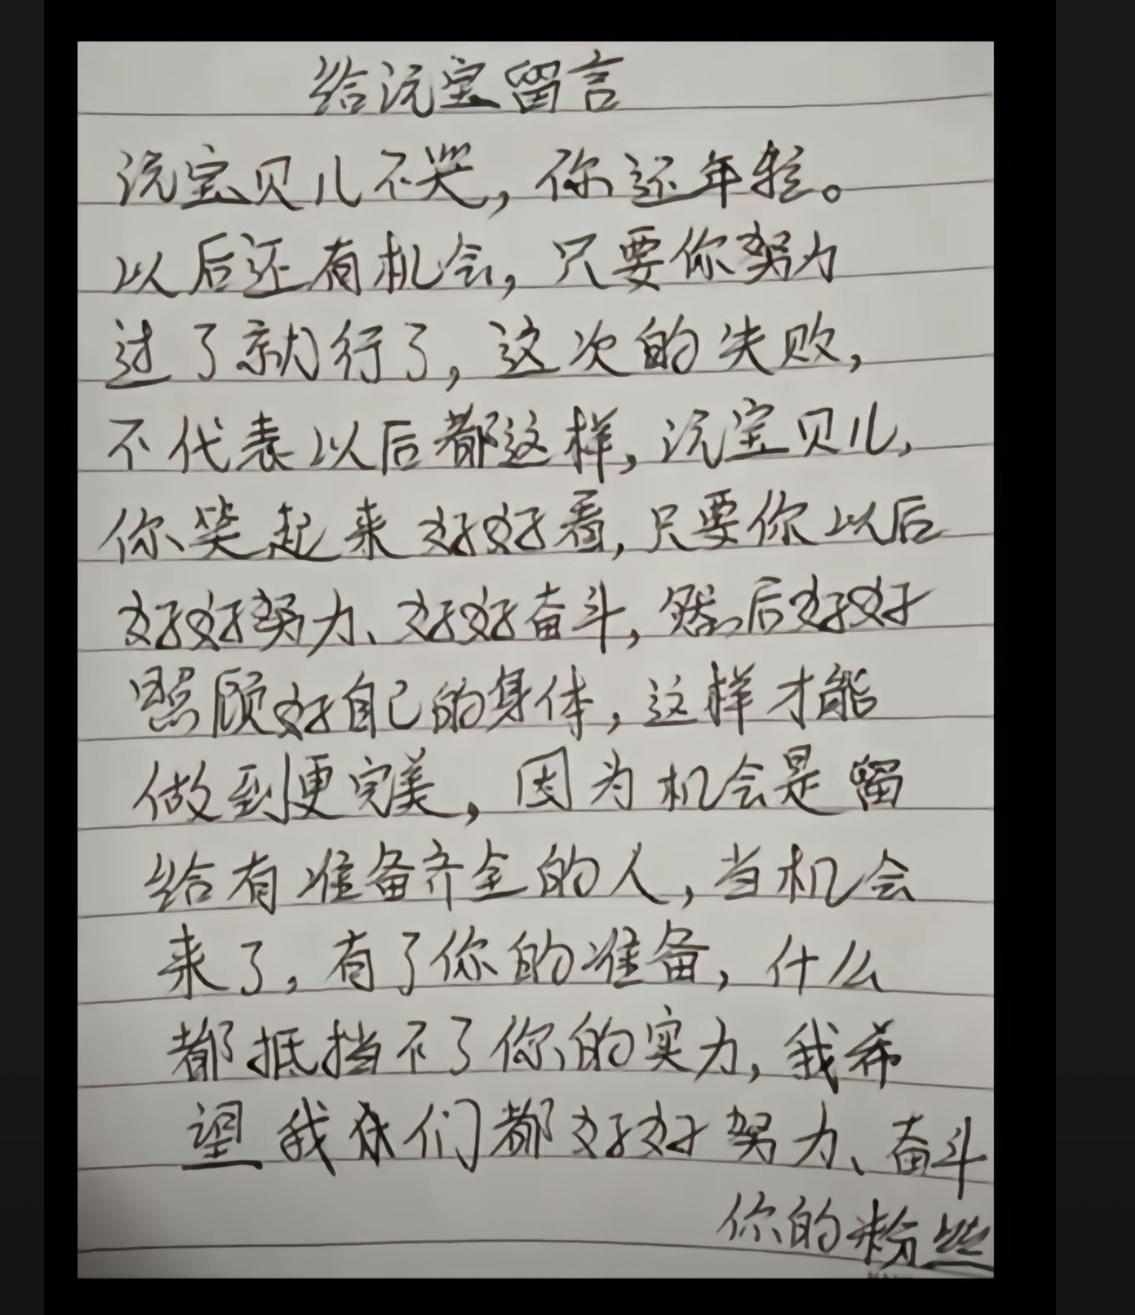 给沅宝留言
沅宝贝儿不哭，你还年轻。
以后还有机会，只要你努力
过了就行了，这次的失败，
不代表以后都这样，沅宝贝儿，
你笑起来好好看，只要你以后
好好努力、好好奋斗，然后好好
照顾好自己的身体，这样才能
做到更完美，因为机会是留
给有准备齐全的人，当机会
来了，有了你的准备，什么
都抵挡不了你的实力，我希
望我们都好好努力、奋斗
你的粉丝